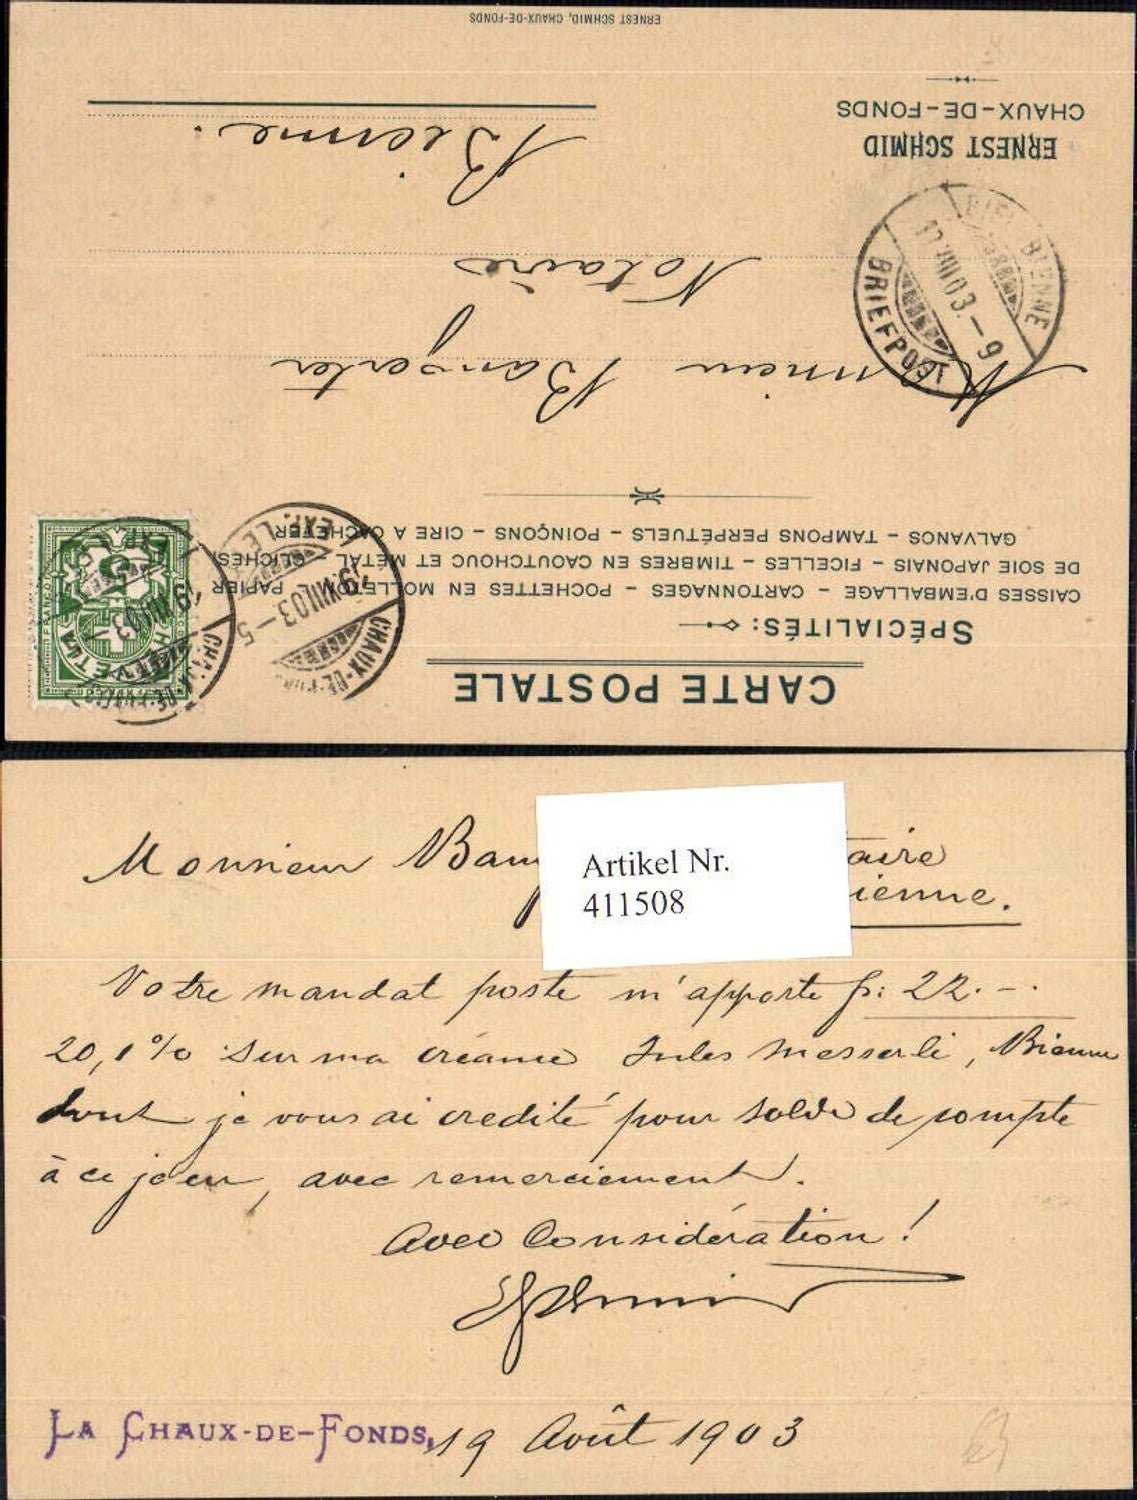 ERNEST SCHMID
CHAUX-DE-FONDS
CARTE POSTALE
SPÉCIALITÉS:
CAISSES D'EMBALLAGE – CARTONNAGES – POCHETTES EN MOLLETON – PAPIER
DE SOIE JAPONAIS – FICELLES – TIMBRES EN CAOUTCHOUC ET MÉTAL – CLICHÉS
GALVANOS – TAMPONS PERPÉTUELS – POINÇONS – CIRE A CACHETER
HELVETIA
5
CHAUX-DE-FONDS
19.VIII.03–5
EXP. LET
Monsieur Bangerter
Notaire
Bienne.
BIEL BIENNE
VIII.03.–9
BRIEFPOST
ERNEST SCHMID, CHAUX-DE-FONDS
Monsieur Ban taire
ienne.
Artikel Nr.
411508
Votre mandat poste m'apporte fs: 22.–.
20,1% sur ma créance Jules Messerli, Bienne
dont je vous ai credité pour solde de compte
à ce jour, avec remerciement.
Avec Considération!
La Chaux-de-Fonds, 19 Août 1903